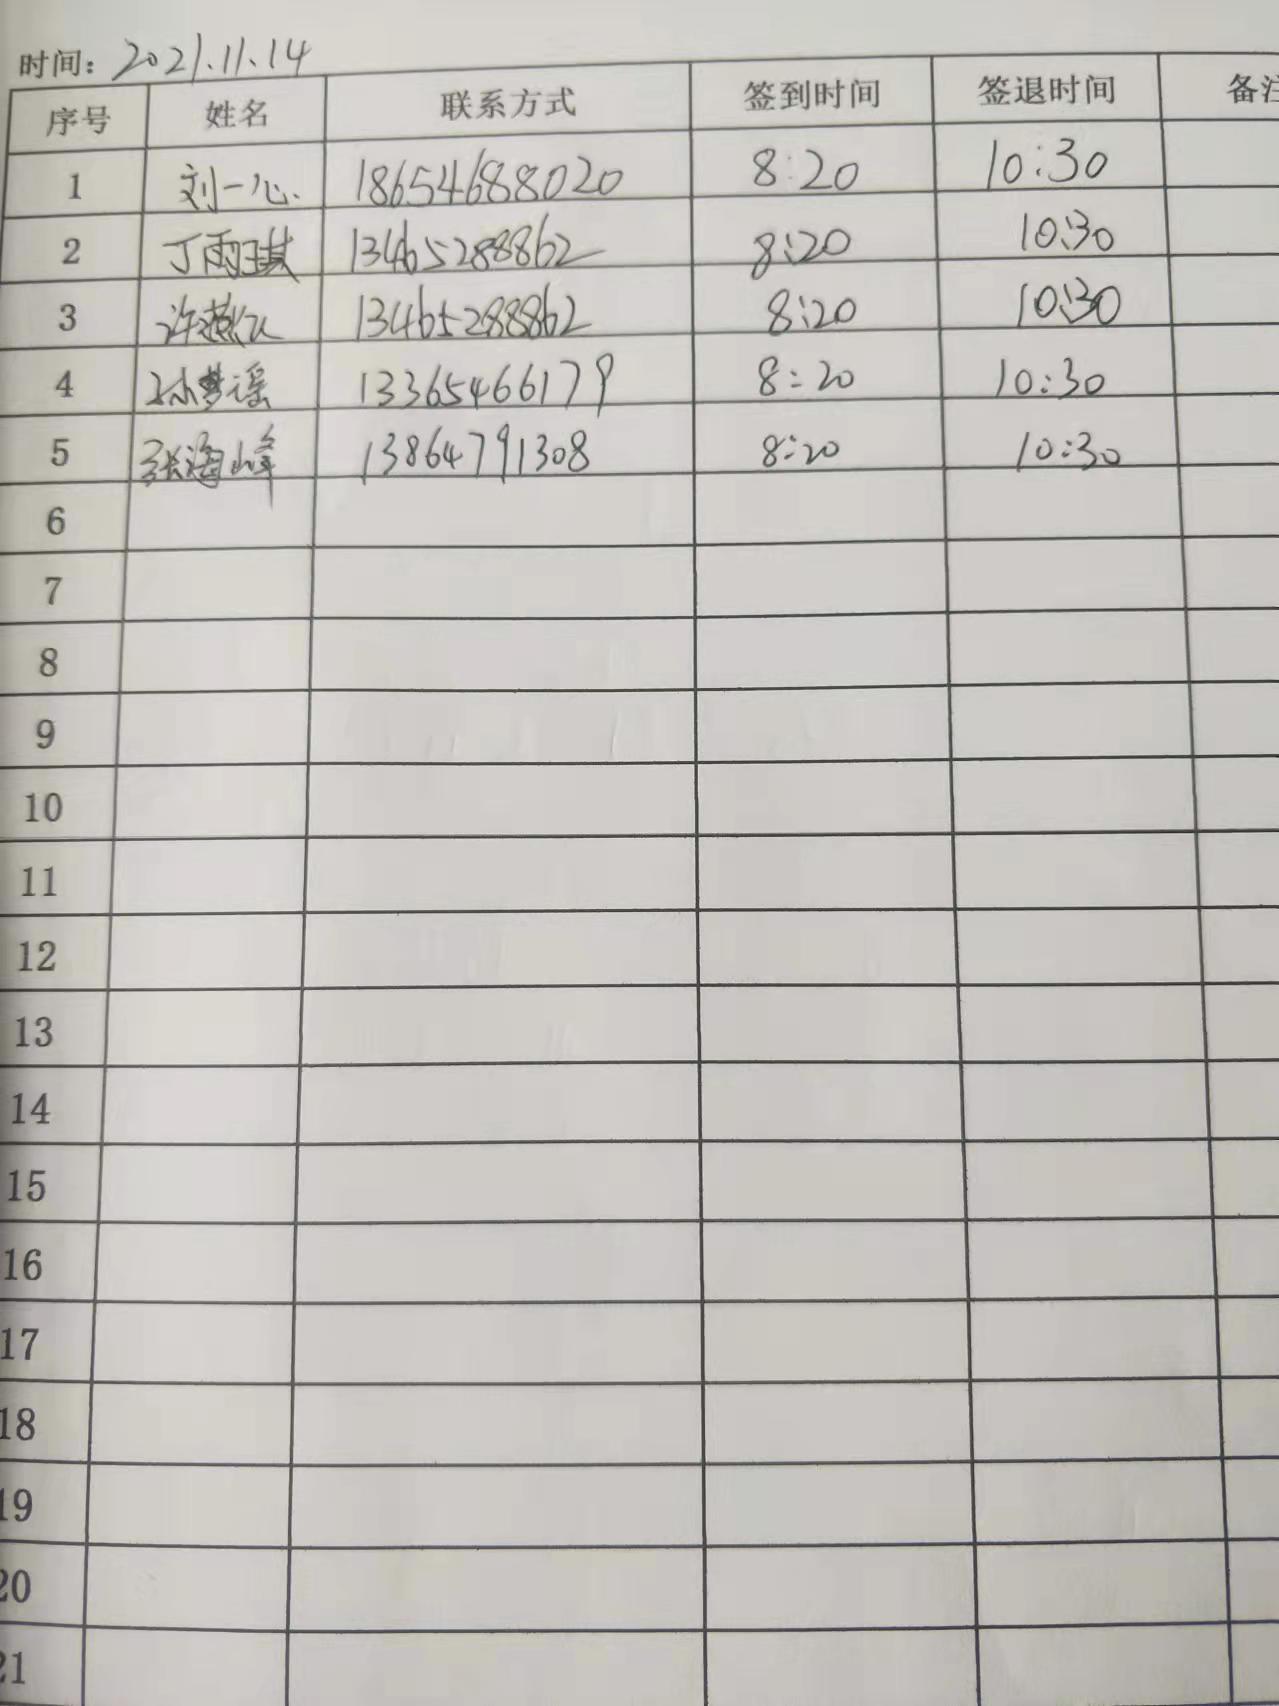 时间: 2021.11.14
序号 姓名 联系方式 签到时间 签退时间 备注
1 刘一心 18654688020 8:20 10:30
2 丁雨琪 13465288862 8:20 10:30
3 许燕 13465288862 8:20 10:30
4 孙梦谣 13365466179 8:20 10:30
5 张海峰 13864791308 8:20 10:30
6
7
8
9
10
11
12
13
14
15
16
17
18
19
20
21